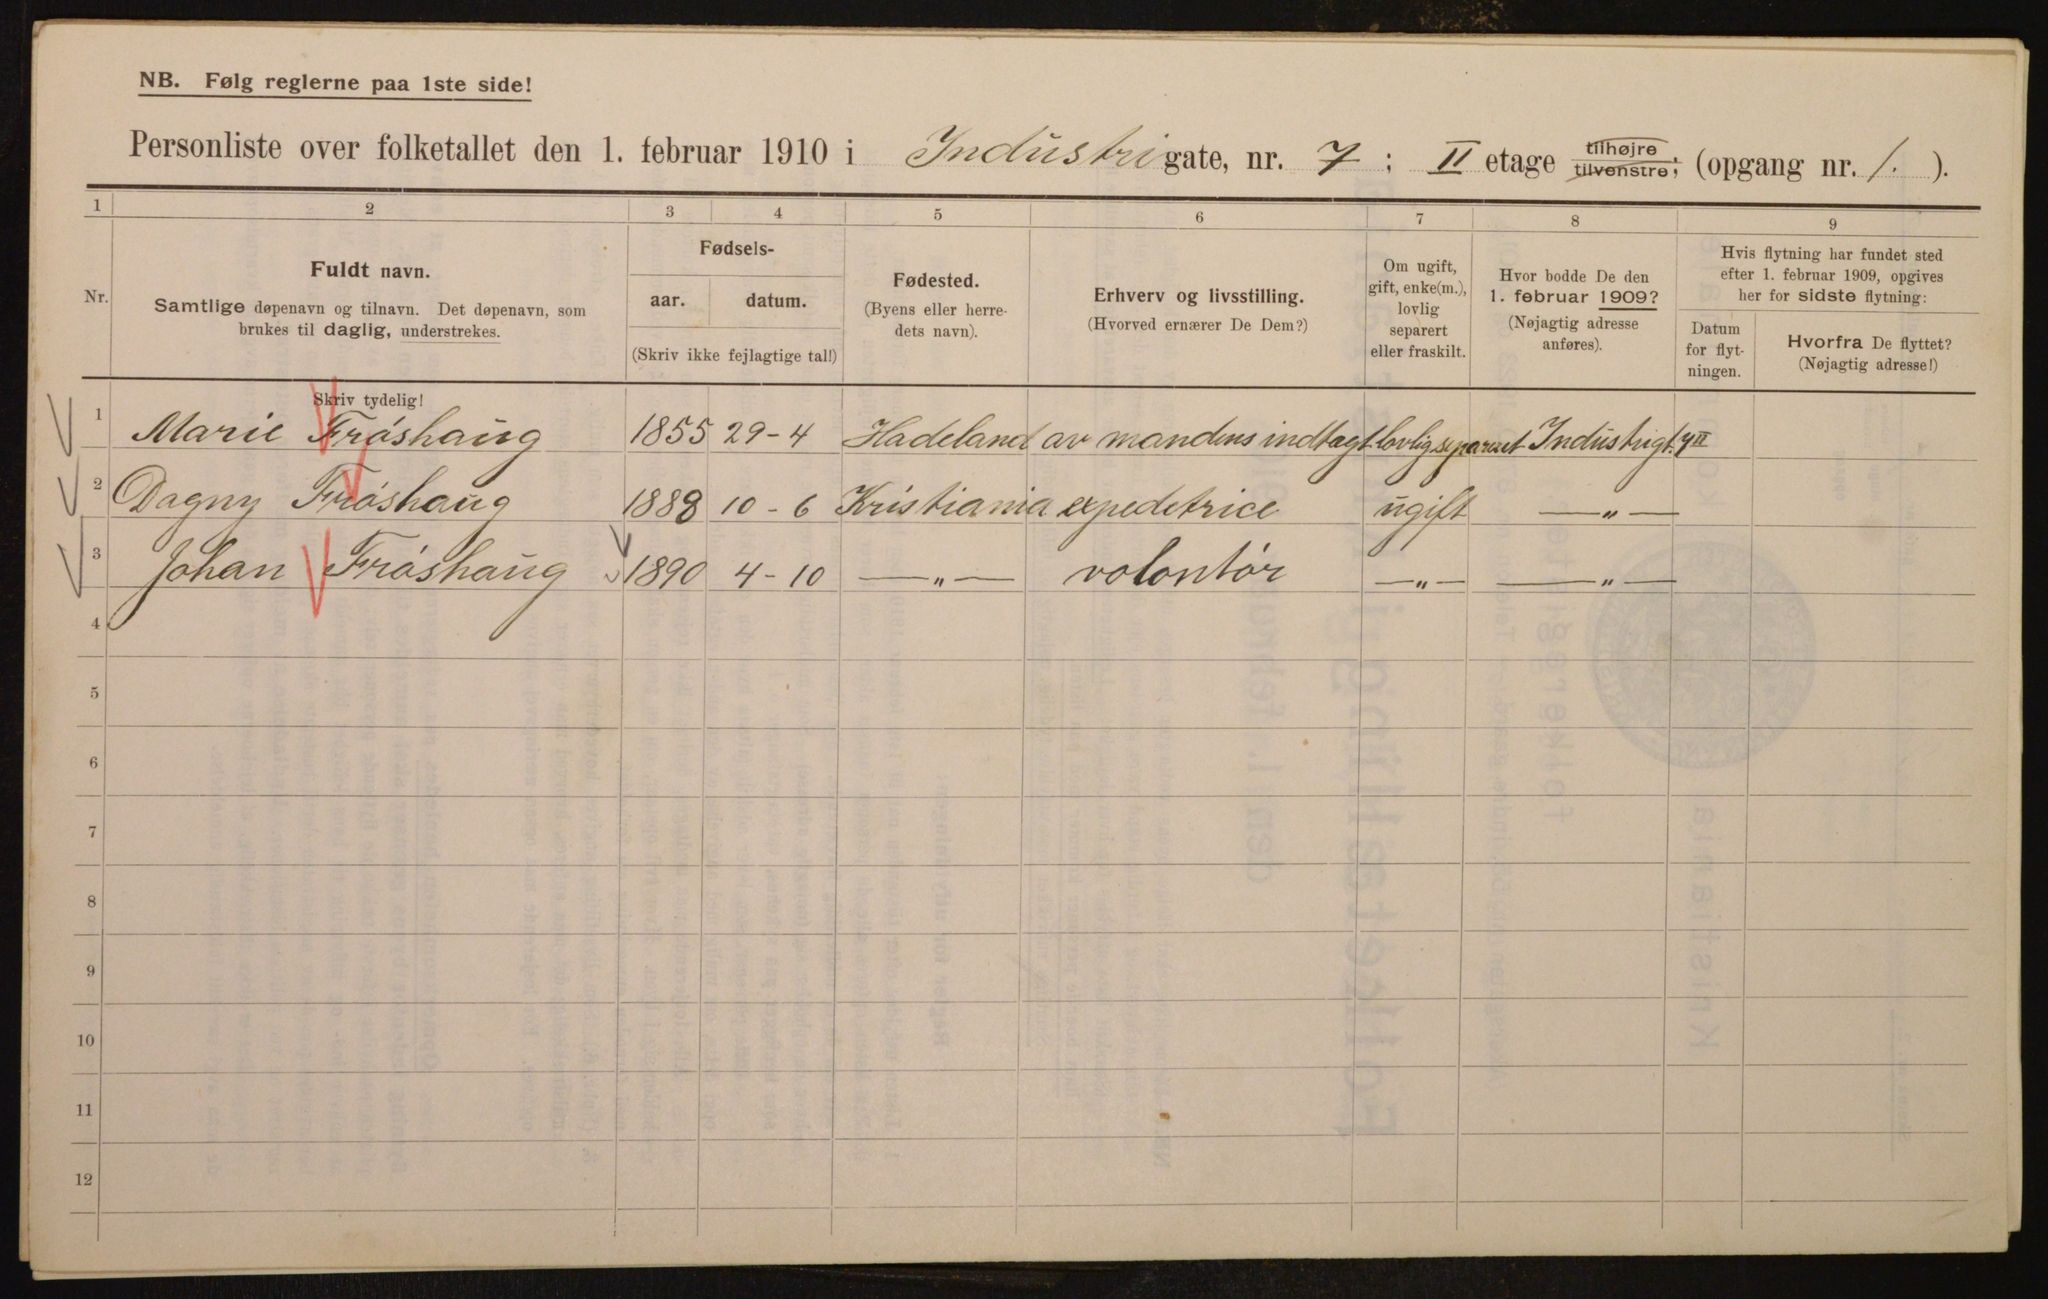 NB. Følg reglerne paa 1ste side!
Personliste over folketallet den 1. februar 1910 i Industrigate, nr. 7; II etage tilhøjre tilvenstre; (opgang nr. 1.).
1 2 3 4 5 6 7 8 9
Nr.
Fuldt navn.
Samtlige døpenavn og tilnavn. Det døpenavn, som
brukes til daglig, understrekes.
Skriv tydelig!
Fødsels-
aar. datum.
(Skriv ikke fejlagtige tal!)
Fødested.
(Byens eller herre-
dets navn).
Erhverv og livsstilling.
(Hvorved ernærer De Dem?)
Om ugift,
gift, enke(m.),
lovlig
separert
eller fraskilt.
Hvor bodde De den
1. februar 1909?
(Nøjagtig adresse
anføres).
Hvis flytning har fundet sted
efter 1. februar 1909, opgives
her for sidste flytning:
Datum
for flyt-
ningen.
Hvorfra De flyttet?
(Nøjagtig adresse!)
1 Marie Frøshaug 1855 29-4 Hadeland av mandens indtægt lovlig separert Industrigt. 7 II
2 Dagny Frøshaug 1888 10-6 Kristiania expedetrice ugift — „ —
3 Johan Frøshaug 1890 4-10 — „ — volontør — „ — — „ —
4
5
6
7
8
9
10
11
12